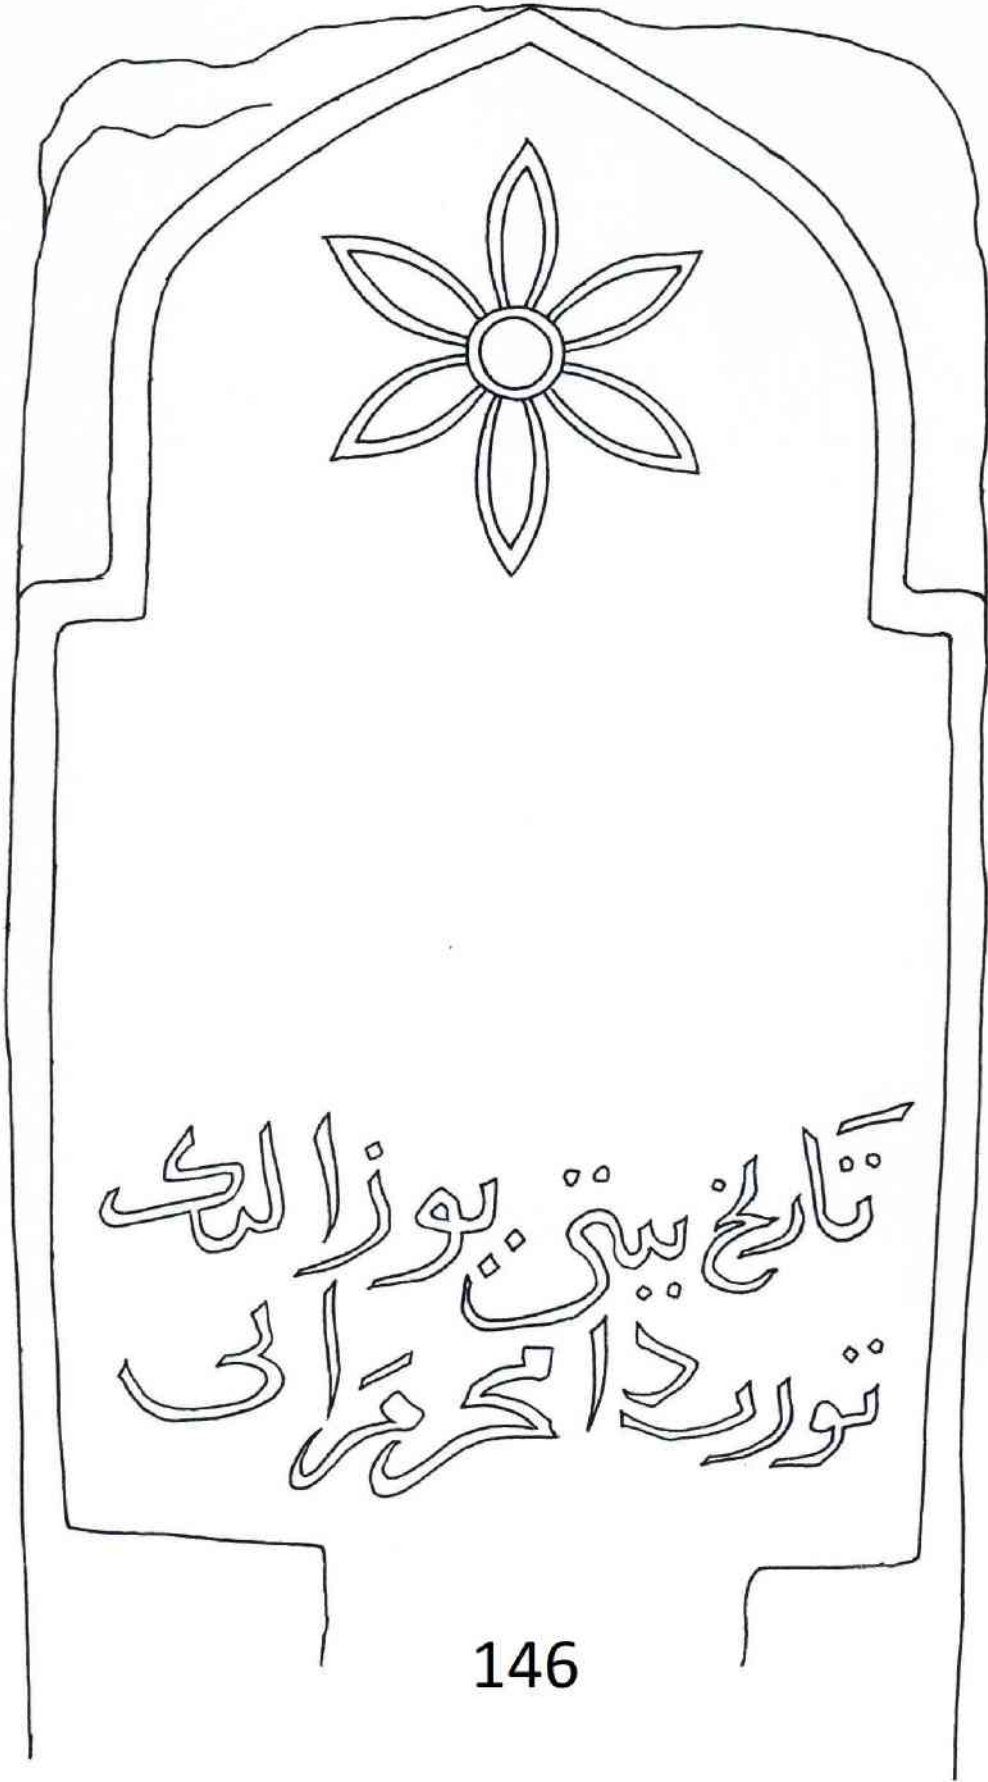 تَاريخ ييتي يوز الىك
تورٮ دا محرمَ اى
146